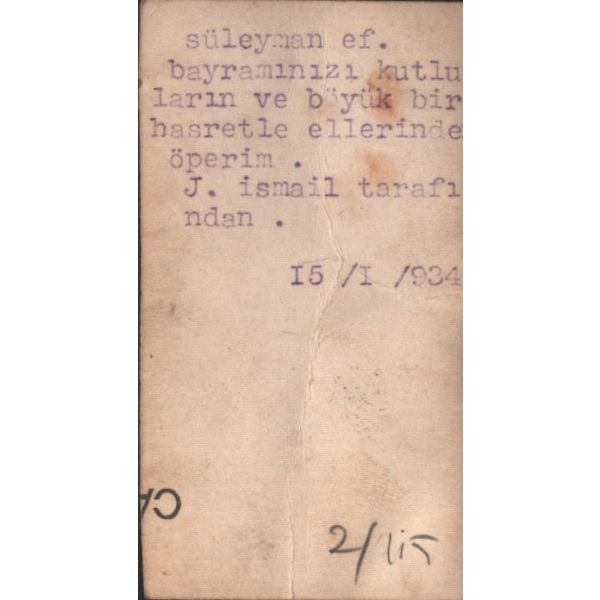 süleyman ef.
bayramınızı kutlu
ların ve böyük bir
hasretle ellerinde
öperim .
J. ismail tarafı
ndan .
I5 /I /934
CA